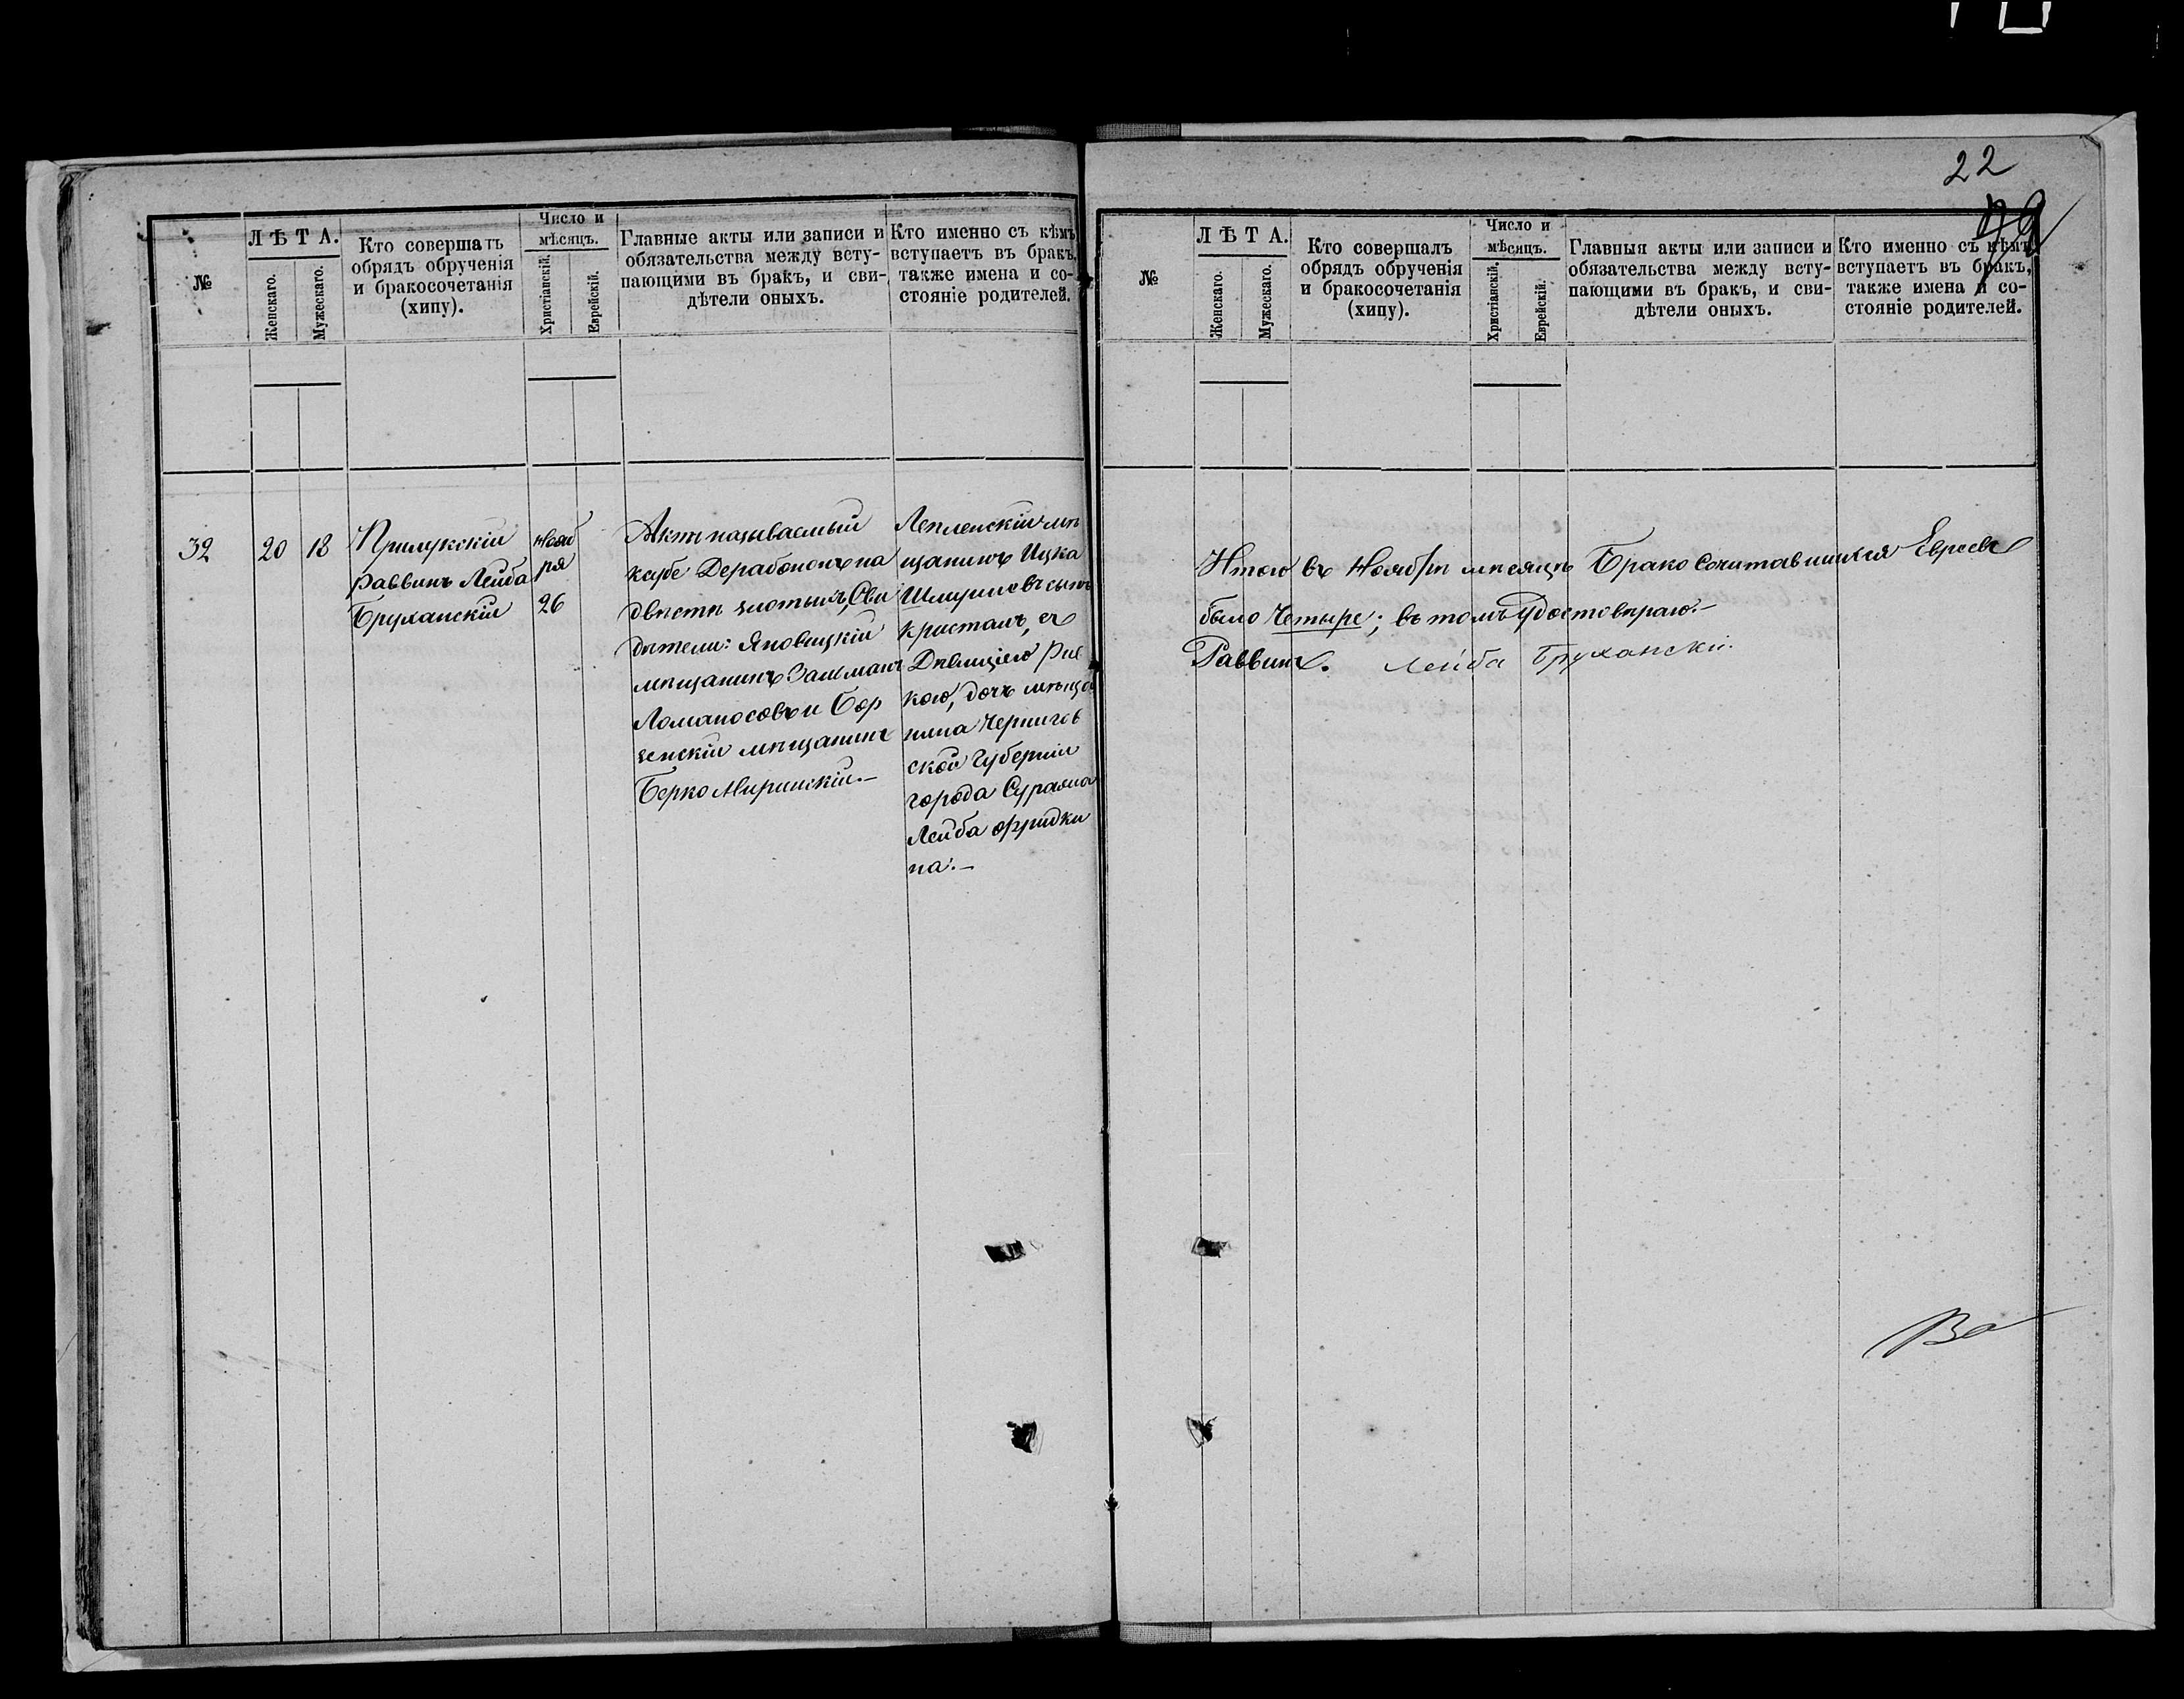 22
№
ЛѢТА.
Женскаго.
Мужескаго.
Кто совершалъ
обрядъ обрученія
и бракосочетанія
(хипу).
Число и
мѣсяцъ.
Христіанскій.
Еврейскій.
Главные акты или записи и
обязательства между всту-
пающими въ бракъ, и сви-
дѣтели оныхъ.
Кто именно съ кѣмъ
вступаетъ въ бракъ,
также имена и со-
стояніе родителей.
32
20
18
Прилукскій
Раввинъ Лейба
Бруханскій
Нояб
ря
26
Актъ называемый
кѣсбе Дерабононъ на
двѣсти злотыхъ, Сви
дѣтели: Яновицкій
мѣщанинъ Залманъ
Ломаносовъ и Бор
зенскій мѣщанинъ
Берко Миринскій.—
Лепленскій мѣ
щанинъ Ицка
сынъ
Кристалъ, съ
Дѣвицею Рив
кою, дочь мѣща
нина Чернигов
ской Губерніи
города Суража
Лейба Фридки
на.—
№
ЛѢТА.
Женскаго.
Мужескаго.
Кто совершалъ
обрядъ обрученія
и бракосочетанія
(хипу).
Число и
мѣсяцъ.
Христіанскій.
Еврейскій.
Главныя акты или записи и
обязательства между всту-
пающими въ бракъ, и сви-
дѣтели оныхъ.
Кто именно съ кѣмъ
вступаетъ въ бракъ,
также имена и со-
стояніе родителей.
Итого въ Ноябрѣ мѣсяцѣ Брако Сочитавшихся Евреевъ
было Четыре; въ томъ Удостовѣраю.—
Раввинъ. Лейба Бруханскій.
Во